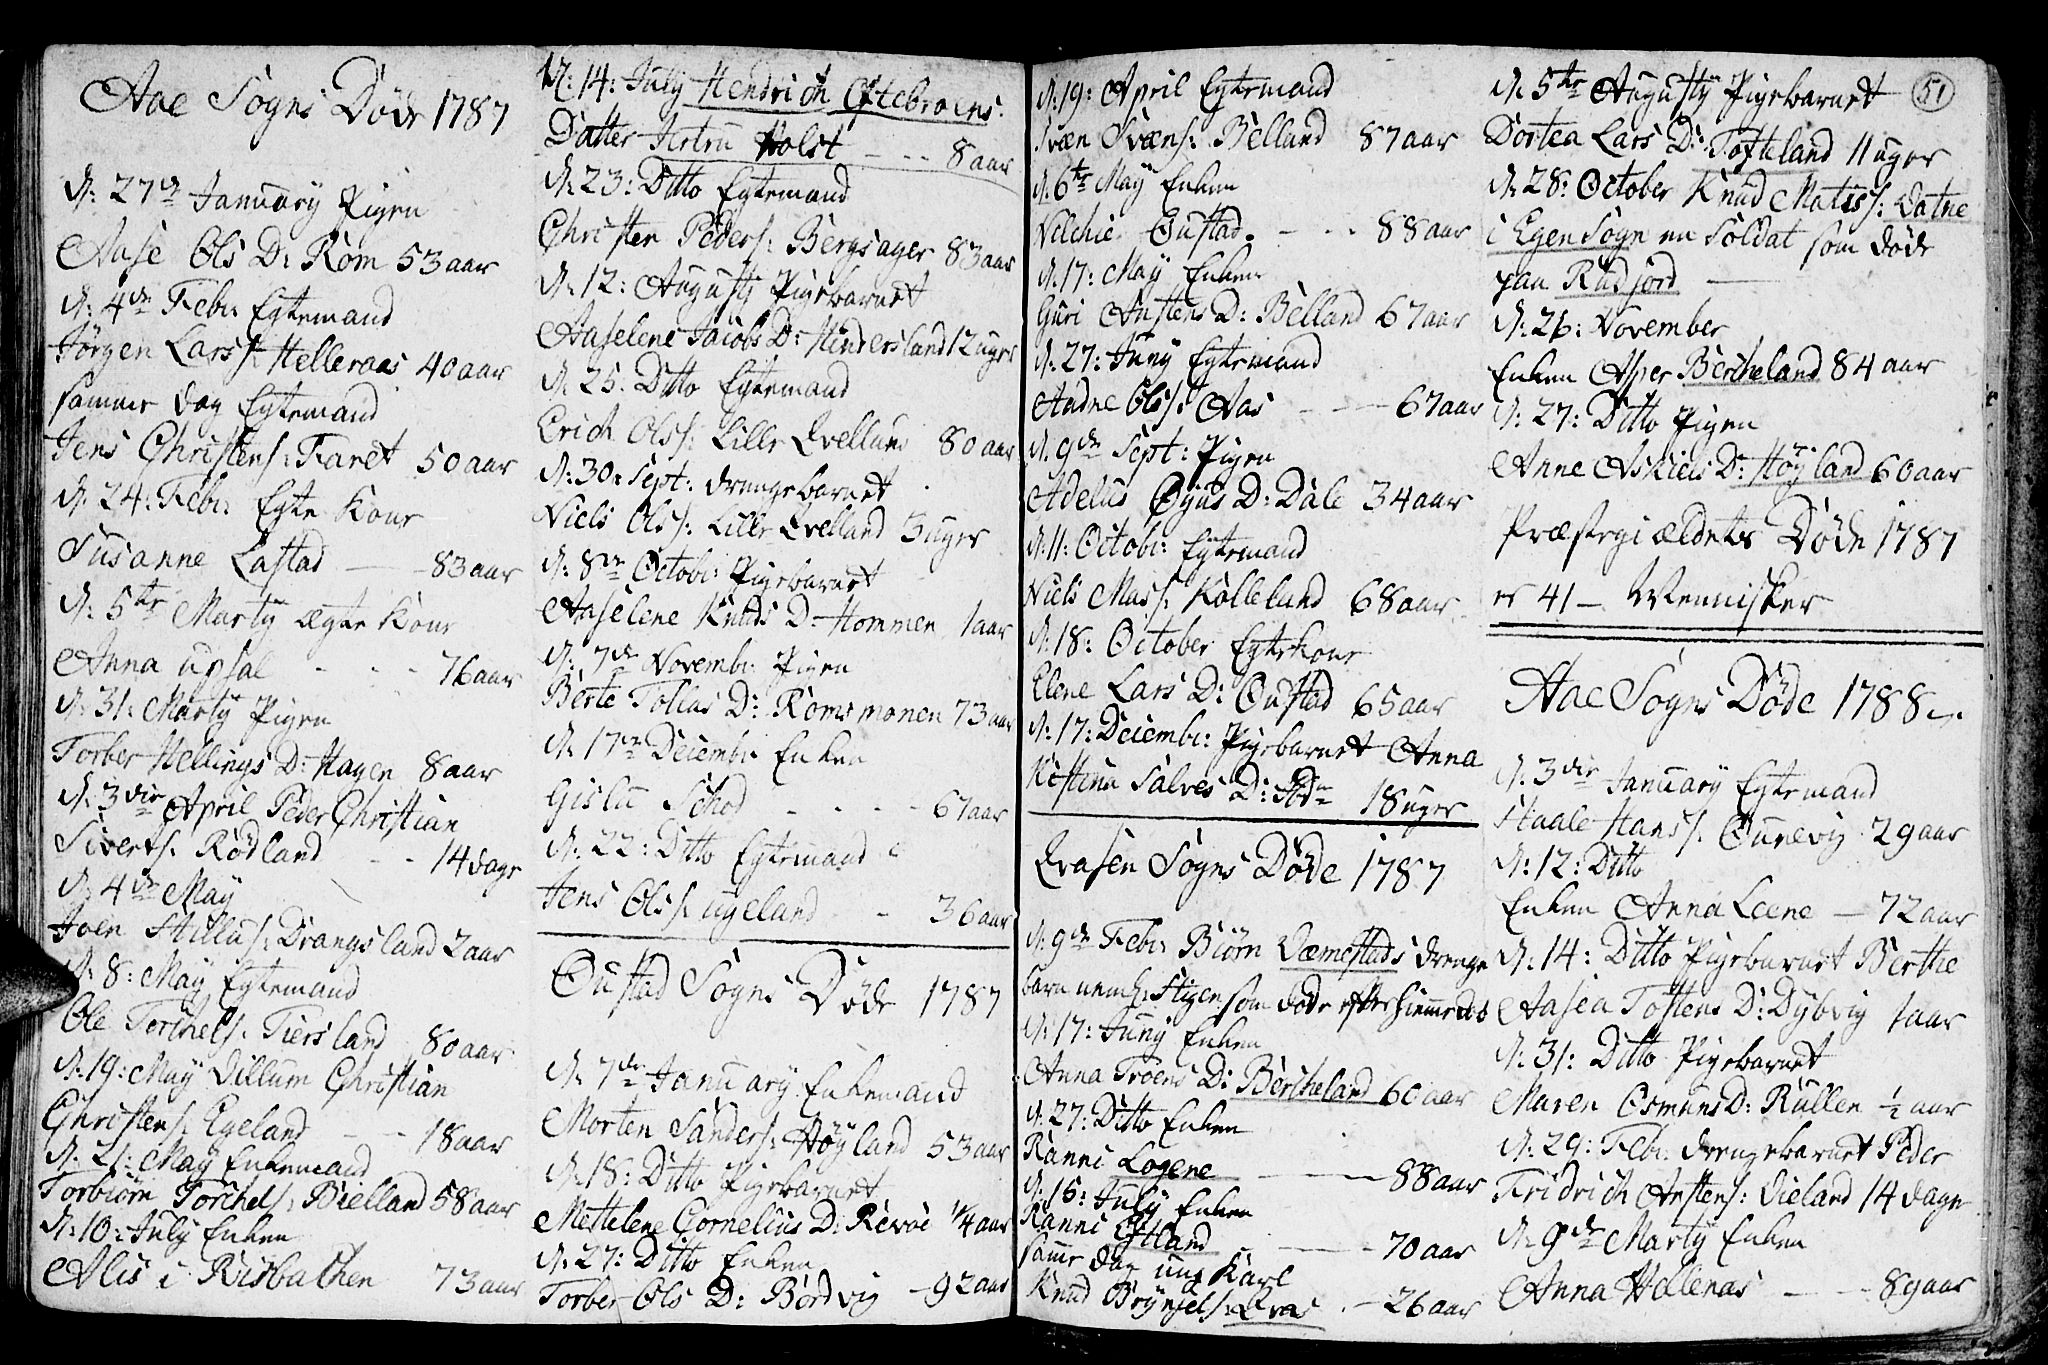 Aae Sogns Døde 1787
d: 27de January Pigen
Aase Ols D: Røm 53 aar
d: 4de Febr: Egtemand
Jørgen Larss: Helleraas 40 aar
samme dag Egtemand
Jens Christens: Faret 50 aar
d: 24: Febr: Egte Kone
Susanne Lastad — 83 aar
d: 5te Marty ægte Kone
Anna upsal - - - 76 aar
d: 31: Marty Pigen
Torber Hellings D: Hagen 8 aar
d: 3die April Peder Christian
Siverts: Rødland - - 14 dage
d: 4de May
Joen Stillus: Drangsland 2 aar
d: 8: May Egtemand
Ole Torchels: Fiersland 80 aar
d: 19: May Villum Christian
Christens: Egeland - - 18 aar
d: 21: May Enkemand
Torbiørn Torchels: Bielland 58 aar
d: 10: July Enken
Alis i Risbakken 73 aar
d: 14: July Hendrich Øftebroens
Datter Jertru Holst - - - 8 aar
d: 23: Ditto Egtemand
Christen Peders: Bergsager 83 aar
d: 12: Augusty Pigebarnet
Aaselene Jacobs D: Hindersland 12 uger
d: 25. Ditto Egtemand
Erich Olss: Lille Qvelland 80 aar
d: 30: Sept: drengebarnet
Niels Olss: Lille Qvelland 3 uger
d: 8de Octobr: Pigebarnet
Aaselene Knuds D: Hommen 1 aar
d: 7de Novembr: Pigen
Berte Tollas D: Romsmonen 73 aar
d: 17de Decembr: Enken
Gislu Schod - - - - 67 aar
d: 22: Ditto Egtemand
Jens Olss: ugeland - 36 aar
Øustad Sogns Døde 1787
d: 7de January Enkemand
Morten Sanders: Høyland 53 aar
d: 18: Ditto Pigebarnet
Mettelene Cornelius D: Revøe 1/4 aar
d: 27: Ditto Enken
Torber Ols D: Bordvig - 92 aar
d: 19: April Egtemand
Sven Svens: Belland 87 aar
d: 6te May Enken
Øustad. - - - 88 aar
d: 17: May Enken
Guri Anstens D: Belland 67 aar
d: 27: Juny Egtemand
Aadne Olss: Aas - - - 67 aar
d: 9de Sept: Pigen
Adelus Øyus D: Dale 34 aar
d: 11: Octobr: Egtemand
Niels Mass: Kolleland 68 aar
d: 18: October Egtekone
Elene Lars D: Øustad 65 aar
d: 17: Decembr: Pigebarnet Anna
Kistina Salves D: 18 uger
Qvasen Sogns Døde 1787
d: 9de Febr: Biørn Væmestads drenge
barn neml: Stigen som døde efter hiemedob
d: 17: Juny Enken
Anna Troens D: Bercheland 60 aar
d: 27: Ditto Enken
Ranni Logene - - - 88 aar
d: 15: July Enken
Ranni Eftland - - - 70 aar
samme dag ung Karl
Knud Brynjels: Qvas - 26 aar
51
d: 5te Augusty Pigebarnet
Dortea Lars D: Tofteland 11 uger
d: 28: October Knud Matiss: Vatne
i Egen Sogn en Soldat som døde
paa Rudjord —
d: 26: November
Enken Asper Bercheland 84 aar
d: 27: Ditto Pigen
Anne Askiels D: Høyland 60 aar
Præstegiældets Døde 1787
er 41 - Mennisker
Aae Sogns Døde 1788
d: 3die January Egtemand
Staale Hanss: Øurevig 29 aar
d: 12: Ditto
Enken Anna Leene — 72 aar
d: 14: Ditto Pigebarnet Berthe
Aasea Tostens D: Dybvig 1 aar
d: 31: Ditto Pigebarnet
Maren Osmuns D: Rullen ½ aar
d: 29: Febr: drengebarnet Peder
Fridrich Anstens: Vieland 14 dage
d: 9de Marty Enken
Anna Hellenas - - - 89 aar